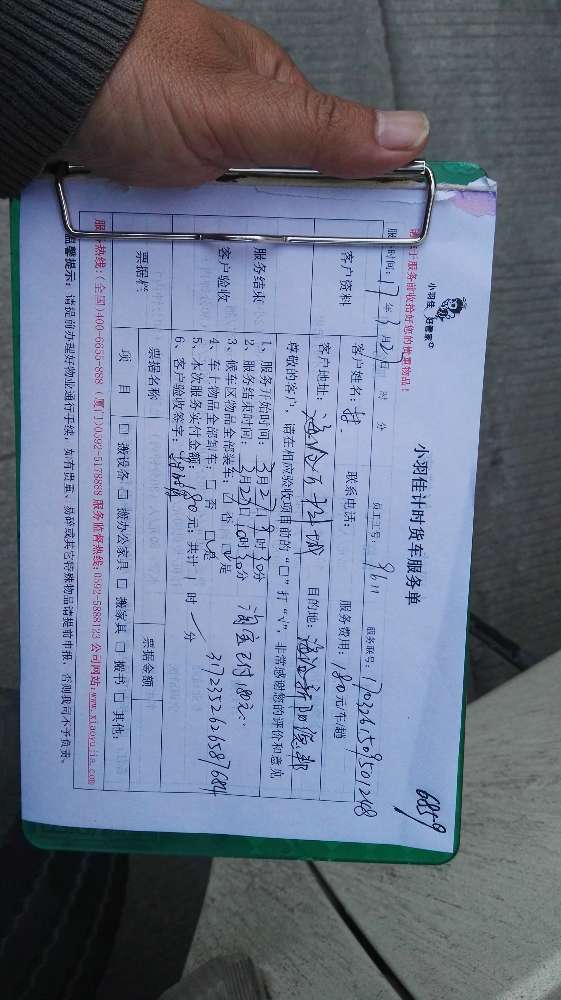 小羽佳 好管家
6859
小羽佳计时货车服务单
员工工号: 9611 服务账号: 1703261509501248
服务时间: 17年3月27日 时 分
客户资料
客户姓名: 联系电话: 服务费用: 180元/车/趟
客户地址: 目的地:
尊敬的客户,请在相应验收项目前的“□”打“√”,非常感谢您的评价和意见
服务结束
客户验收
1、服务开始时间: 3月27日9时30分 淘宝已付180元
2、服务结束时间: 3月27日10时30分
3、候车区物品全部装车: 否 是
4、车上物品全部卸车: □否 是
5、本次服务实付金额: 180元;共计1时 分
6、客户验收签字:
票据栏
票据名称 票据金额
项 目 □搬设备 □搬办公家具 □搬家具 □搬书 □其他:
温馨提示: 请提前办理好物业通行手续,如有贵重、易碎或其它特殊物品请提前申报,否则我司不予负责。
服务热线:(全国)400-6655-858 (厦门)0592-5178888 服务监督热线:0592-5888123 公司网站:www.xiaoyujia.com